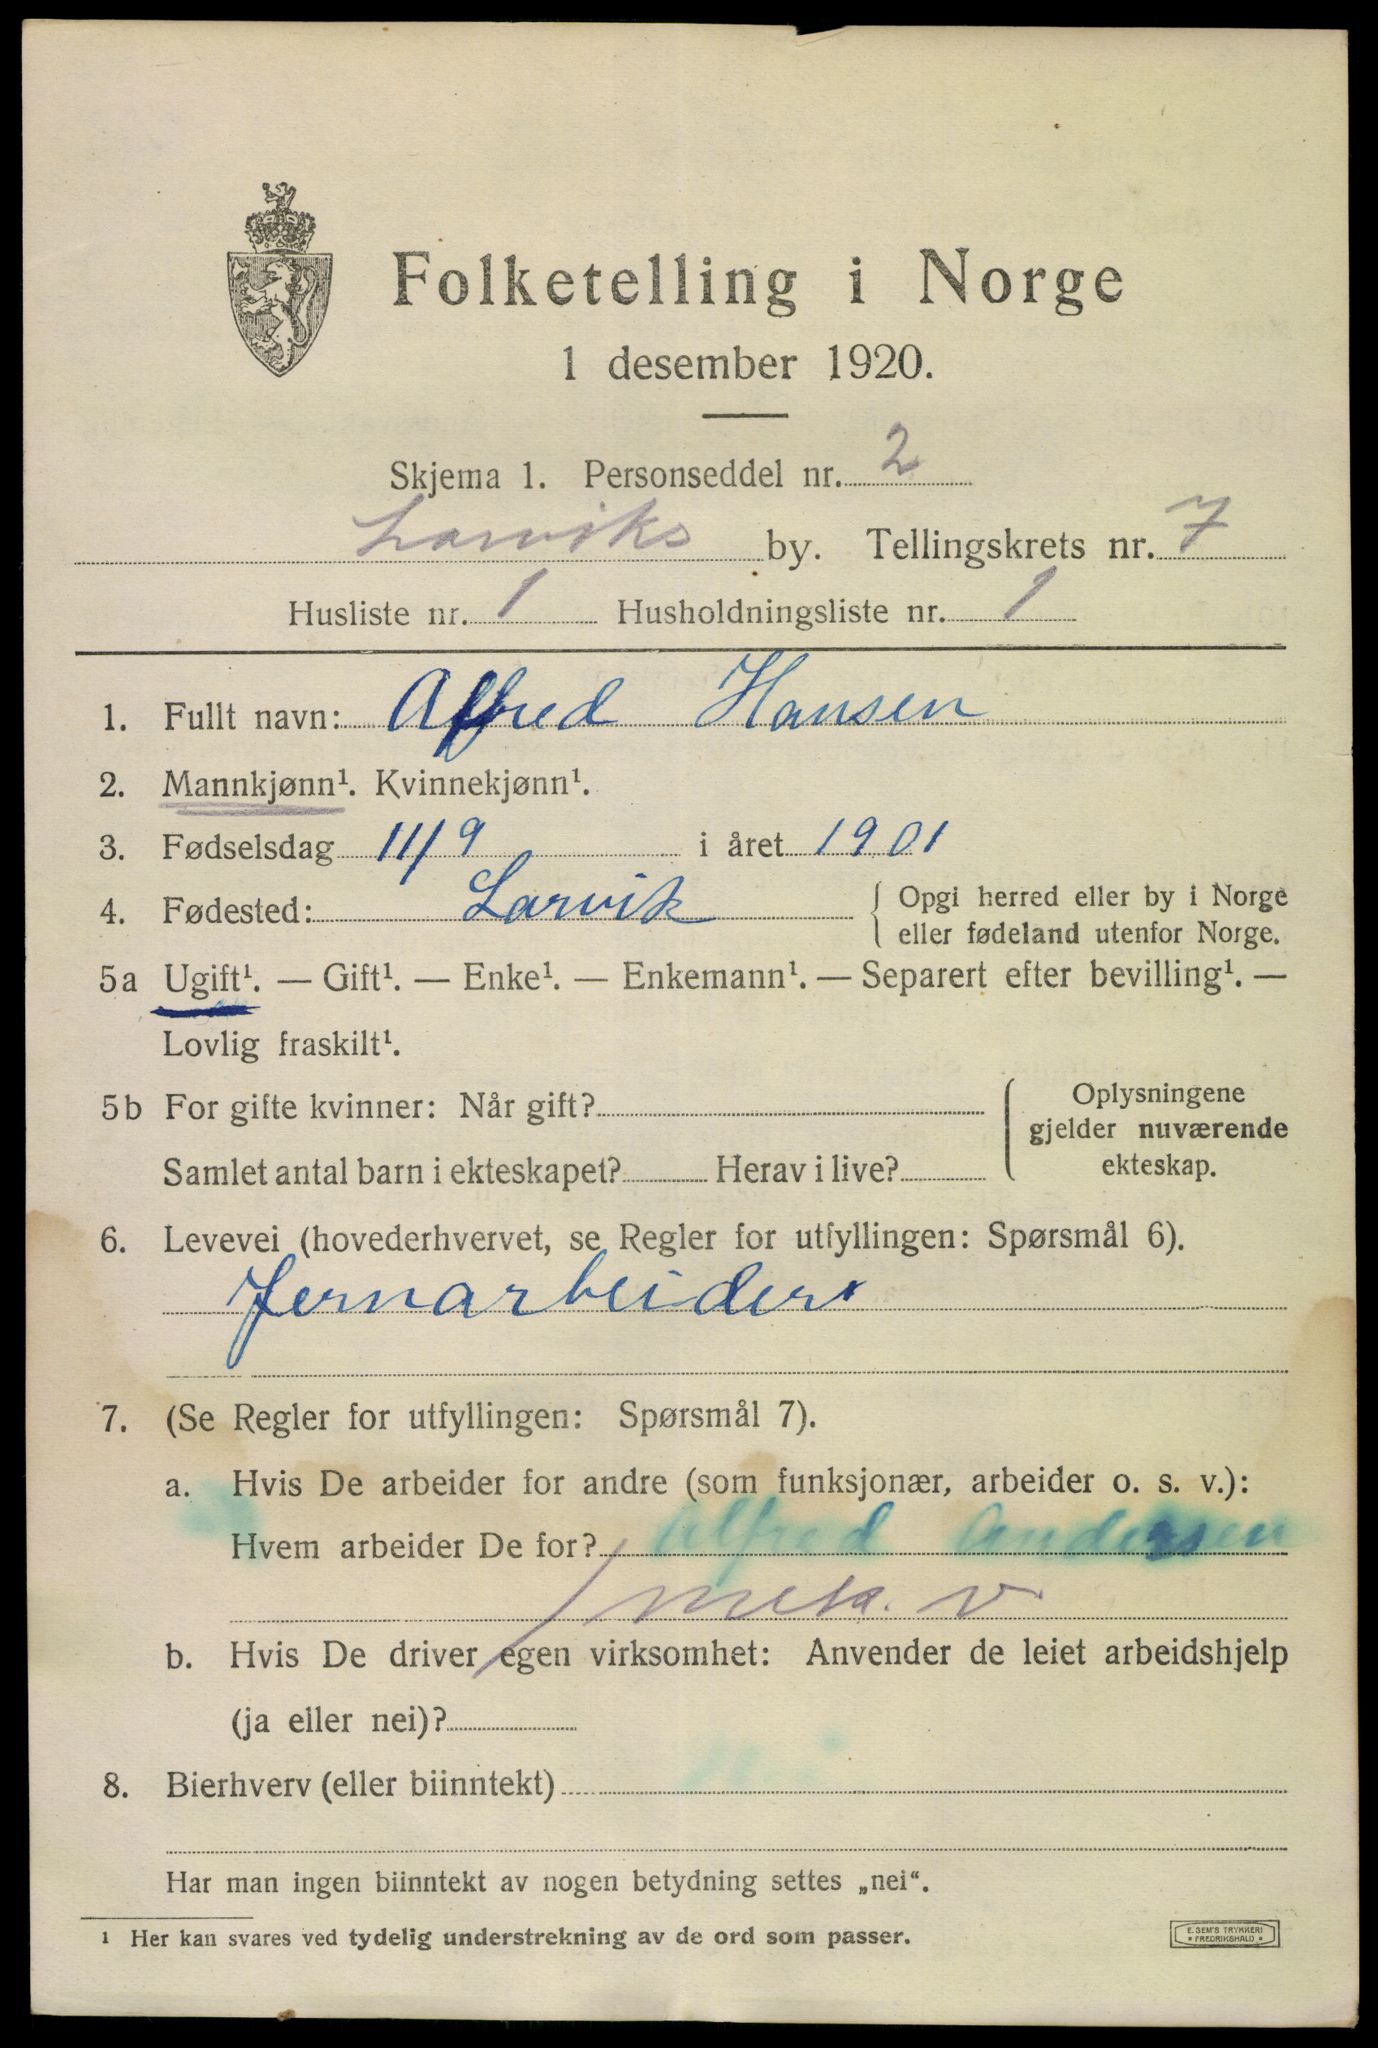 Folketelling i Norge
1 desember 1920.
Skjema 1. Personseddel nr. 2
Larviks by. Tellingskrets nr. 7
Husliste nr. 1 Husholdningsliste nr. 1
1. Fullt navn: Alfred Hansen
2. Mannkjønn¹. Kvinnekjønn¹.
3. Fødselsdag 11/9 i året 1901
4. Fødested: Larvik { Opgi herred eller by i Norge
eller fødeland utenfor Norge.
5a Ugift¹. — Gift¹. — Enke¹. — Enkemann¹. — Separert efter bevilling¹. —
Lovlig fraskilt¹.
5b For gifte kvinner: Når gift?
Samlet antal barn i ekteskapet? Herav i live?
Oplysningene
gjelder nuværende
ekteskap.
6. Levevei (hovederhvervet, se Regler for utfyllingen: Spørsmål 6).
Jernarbeider
7. (Se Regler for utfyllingen: Spørsmål 7).
a. Hvis De arbeider for andre (som funksjonær, arbeider o. s. v.):
Hvem arbeider De for? Alfred Andersen
mek. v
b. Hvis De driver egen virksomhet: Anvender de leiet arbeidshjelp
(ja eller nei)?
8. Bierhverv (eller biinntekt)
Har man ingen biinntekt av nogen betydning settes „nei“.
¹ Her kan svares ved tydelig understrekning av de ord som passer.
E. SEM'S TRYKKERI
* FREDRIKSHALD *